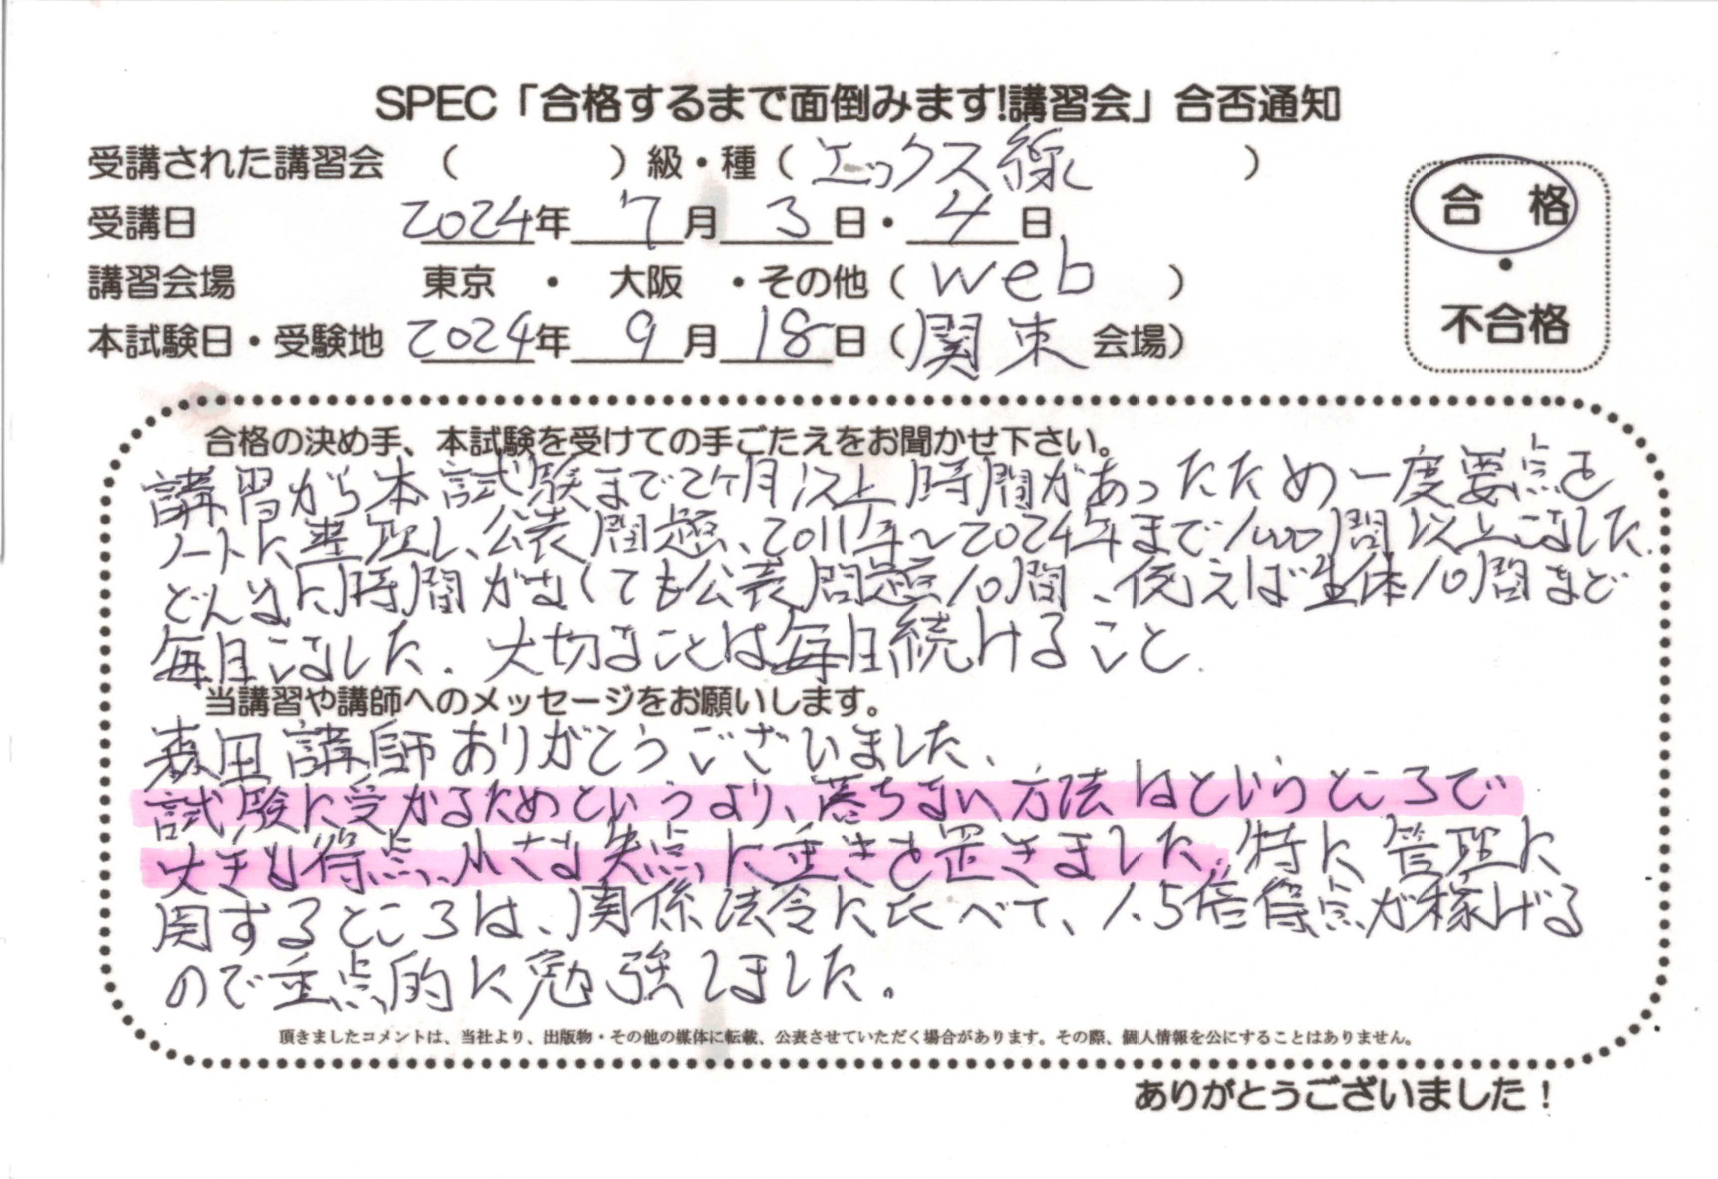 SPEC「合格するまで面倒みます!講習会」合否通知
受講された講習会 （ ）級・種（ エックス線 ）
受講日 2024年 7月 3日・ 4日
合 格
・
不合格
講習会場 東京 ・ 大阪 ・その他（ web ）
本試験日・受験地 2024年 9月 18日（関東 会場）
合格の決め手、本試験を受けての手ごたえをお聞かせ下さい。
講習から本試験まで2ヶ月以上時間があったため一度要点を
ノートに整理し、公表問題、2011年〜2024年まで1000問以上こなした.
どんなに時間がなくても公表問題10問、例えば生体10問など
毎日こなした. 大切なことは毎日続けること.
当講習や講師へのメッセージをお願いします。
森田講師ありがとうございました、
試験に受かるためというより、落ちない方法はというところで
大きな得点、小さな失点に重きを置きました。特に管理に
関するところは、関係法令に比べて、1.5倍得点が稼げる
ので重点的に勉強しました。
頂きましたコメントは、当社より、出版物・その他の媒体に転載、公表させていただく場合があります。その際、個人情報を公にすることはありません。
ありがとうございました！